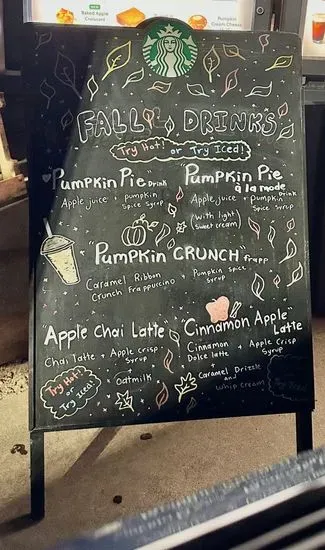 NEW
Baked Apple
Croissant
Pumpkin
Cream Cheese
FALL DRINKS
Try Hot! or Try Iced!
"Pumpkin Pie" Drink
Apple juice + pumpkin
Spice Syrup
"Pumpkin Pie
à la mode"
Apple juice + pumpkin
Spice Syrup
(With light
Sweet cream)
"Pumpkin CRUNCH" frapp
Caramel Ribbon
Crunch Frappuccino + Pumpkin Spice
Syrup
Apple Chai Latte
Chai latte + Apple crisp
Syrup
+
Oatmilk
Try Hot!
or
Try Iced!
"Cinnamon Apple"
Latte
Cinnamon
Dolce latte + Apple Crisp
Syrup
+ Caramel Drizzle
and
whip cream